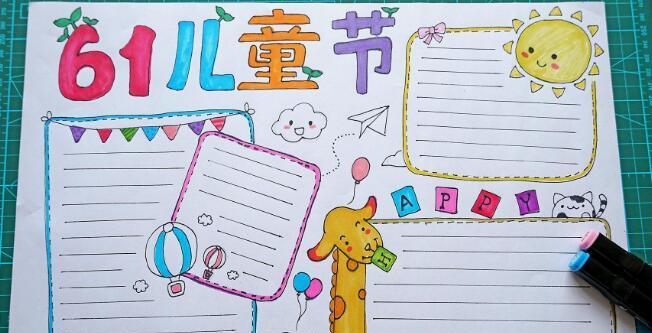 61儿童节
HAPPY